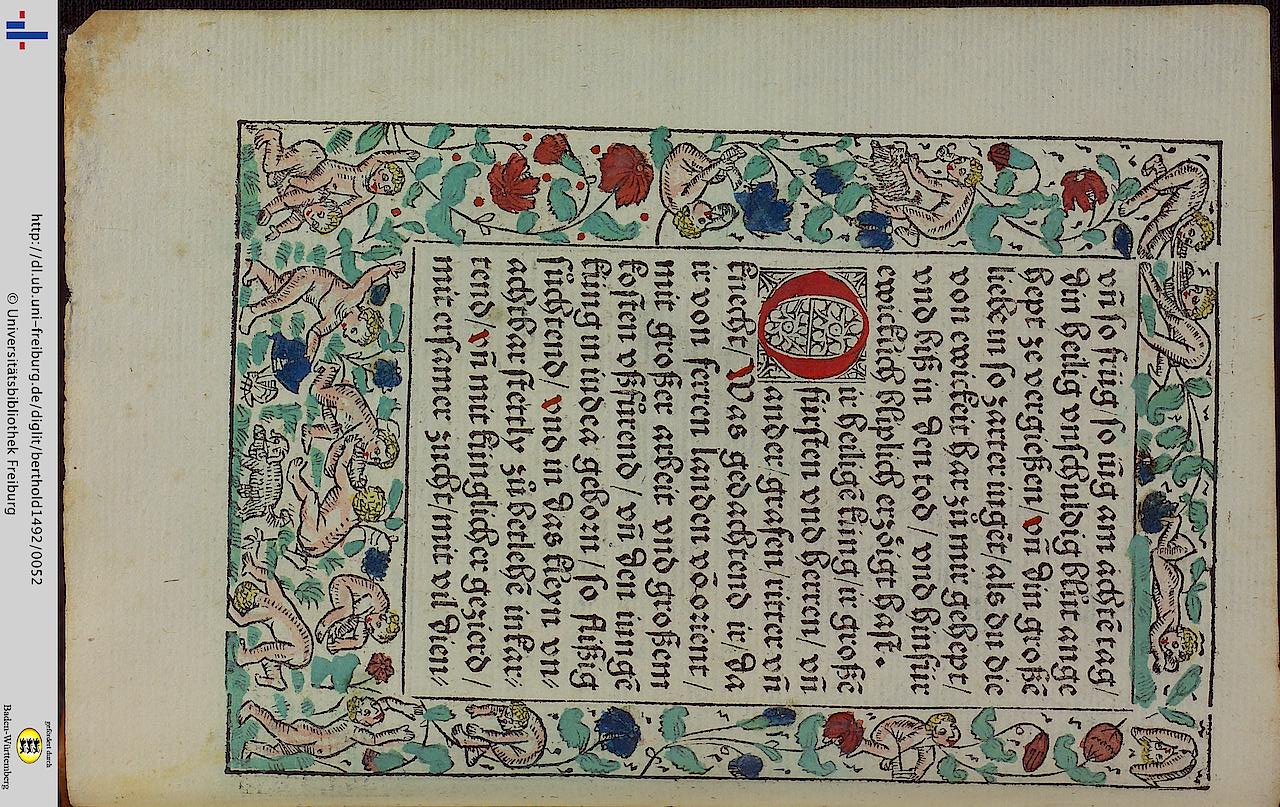 vñ so früg / so nüg am achtē tag /
din heilig vnschuldig blůt ange
hept ze vergießen / vñ din große
liebe in so zarter iugēt / als du die
von ewickeit har zů mir gehept /
vnd biß in den tod / vnd hinfür
ewicklich bliplich erzöigt hast.
Ir heiligē küng / ir große
fürsten vnd herren / vñ
ander / grafen / ritter vñ
knecht / Was gedachtend ir / da
ir von ferren landen vō orient /
mit großer arbeit vnd großem
kosten vßfůrend / vñ den iungē
küng in iudea geborn / so flißig
sůchtend / vnd in das kleyn vn-
achtbar stettly zů betlehē inkar-
tend / vñ mit künglicher gezierd /
mit ersamer zucht / mit vil dien-
http://dl.ub.uni-freiburg.de/diglit/berthold1492/0052
© Universitätsbibliothek Freiburg
gefördert durch
Baden-Württemberg